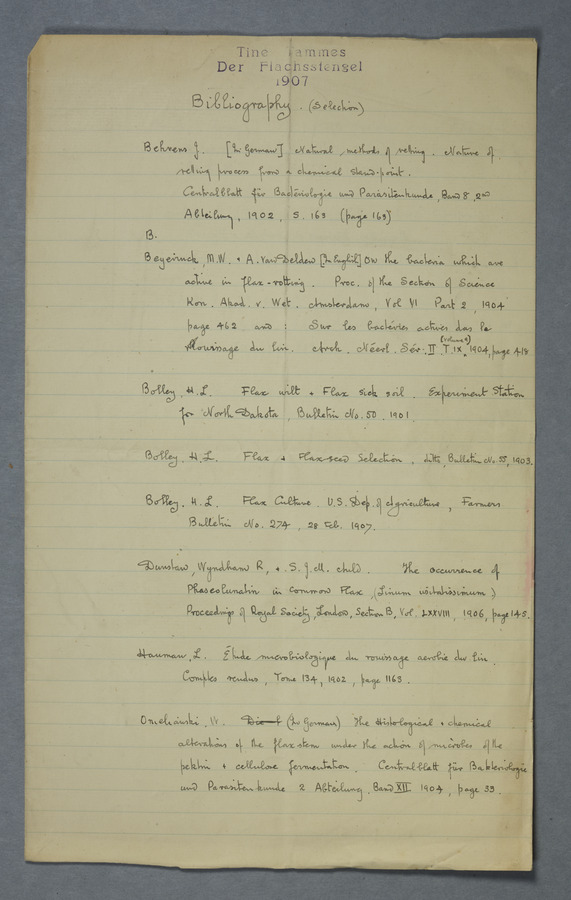 Tine Tammes
Der Flachsstengel
1907
Bibliography. (Selection)
Behrens J. [In German] Natural methods of retting. Nature of
retting process from a chemical stand-point.
Centralblatt für Bacteriologie und Parasitenkunde, Band 8, 2nd
Abteilung, 1902, S. 163 (page 163)
B.
Beyerinck, M.W. + A. van Delden [In English] On the bacteria which are
active in flax-rotting. Proc. of the Section of Science
Kon. Akad. v. Wet. Amsterdam, Vol VI Part 2, 1904
page 462 and : Sur les bactéries actives das le
Rouissage du lin. Arch. Néerl. Sér. II T. IX, (Volume 9) 1904, page 418
Bolley, H.L. Flax wilt + Flax sick soil. Experiment Station
for North Dakota, Bulletin No. 50. 1901.
Bolley, H.L. Flax + Flax-seed Selection. ditto, Bulletin No. 55, 1903.
Bolley, H.L. Flax Culture. U.S. Dep. of Agriculture, Farmers
Bulletin No. 274, 28 Feb. 1907.
Dunstan, Wyndham R, + S.J.M. child. The occurrence of
Phaseolunatin in common Flax, (Linum usitatissimum)
Proceedings of Royal Society, London, Section B, Vol. LXXVIII, 1906, page 145.
Hauman, L. Étude microbiologique du rouissage aerobie du lin.
Comptes rendus, Tome 134, 1902, page 1163.
Omelianski, W. (In German) The Histological + chemical
alterations of the flax stem under the action of microbes of the
pektin + cellulose fermentation. Centralblatt für Bakteriologie
und Parasitenkunde 2 Abteilung, Band XII 1904, page 33.